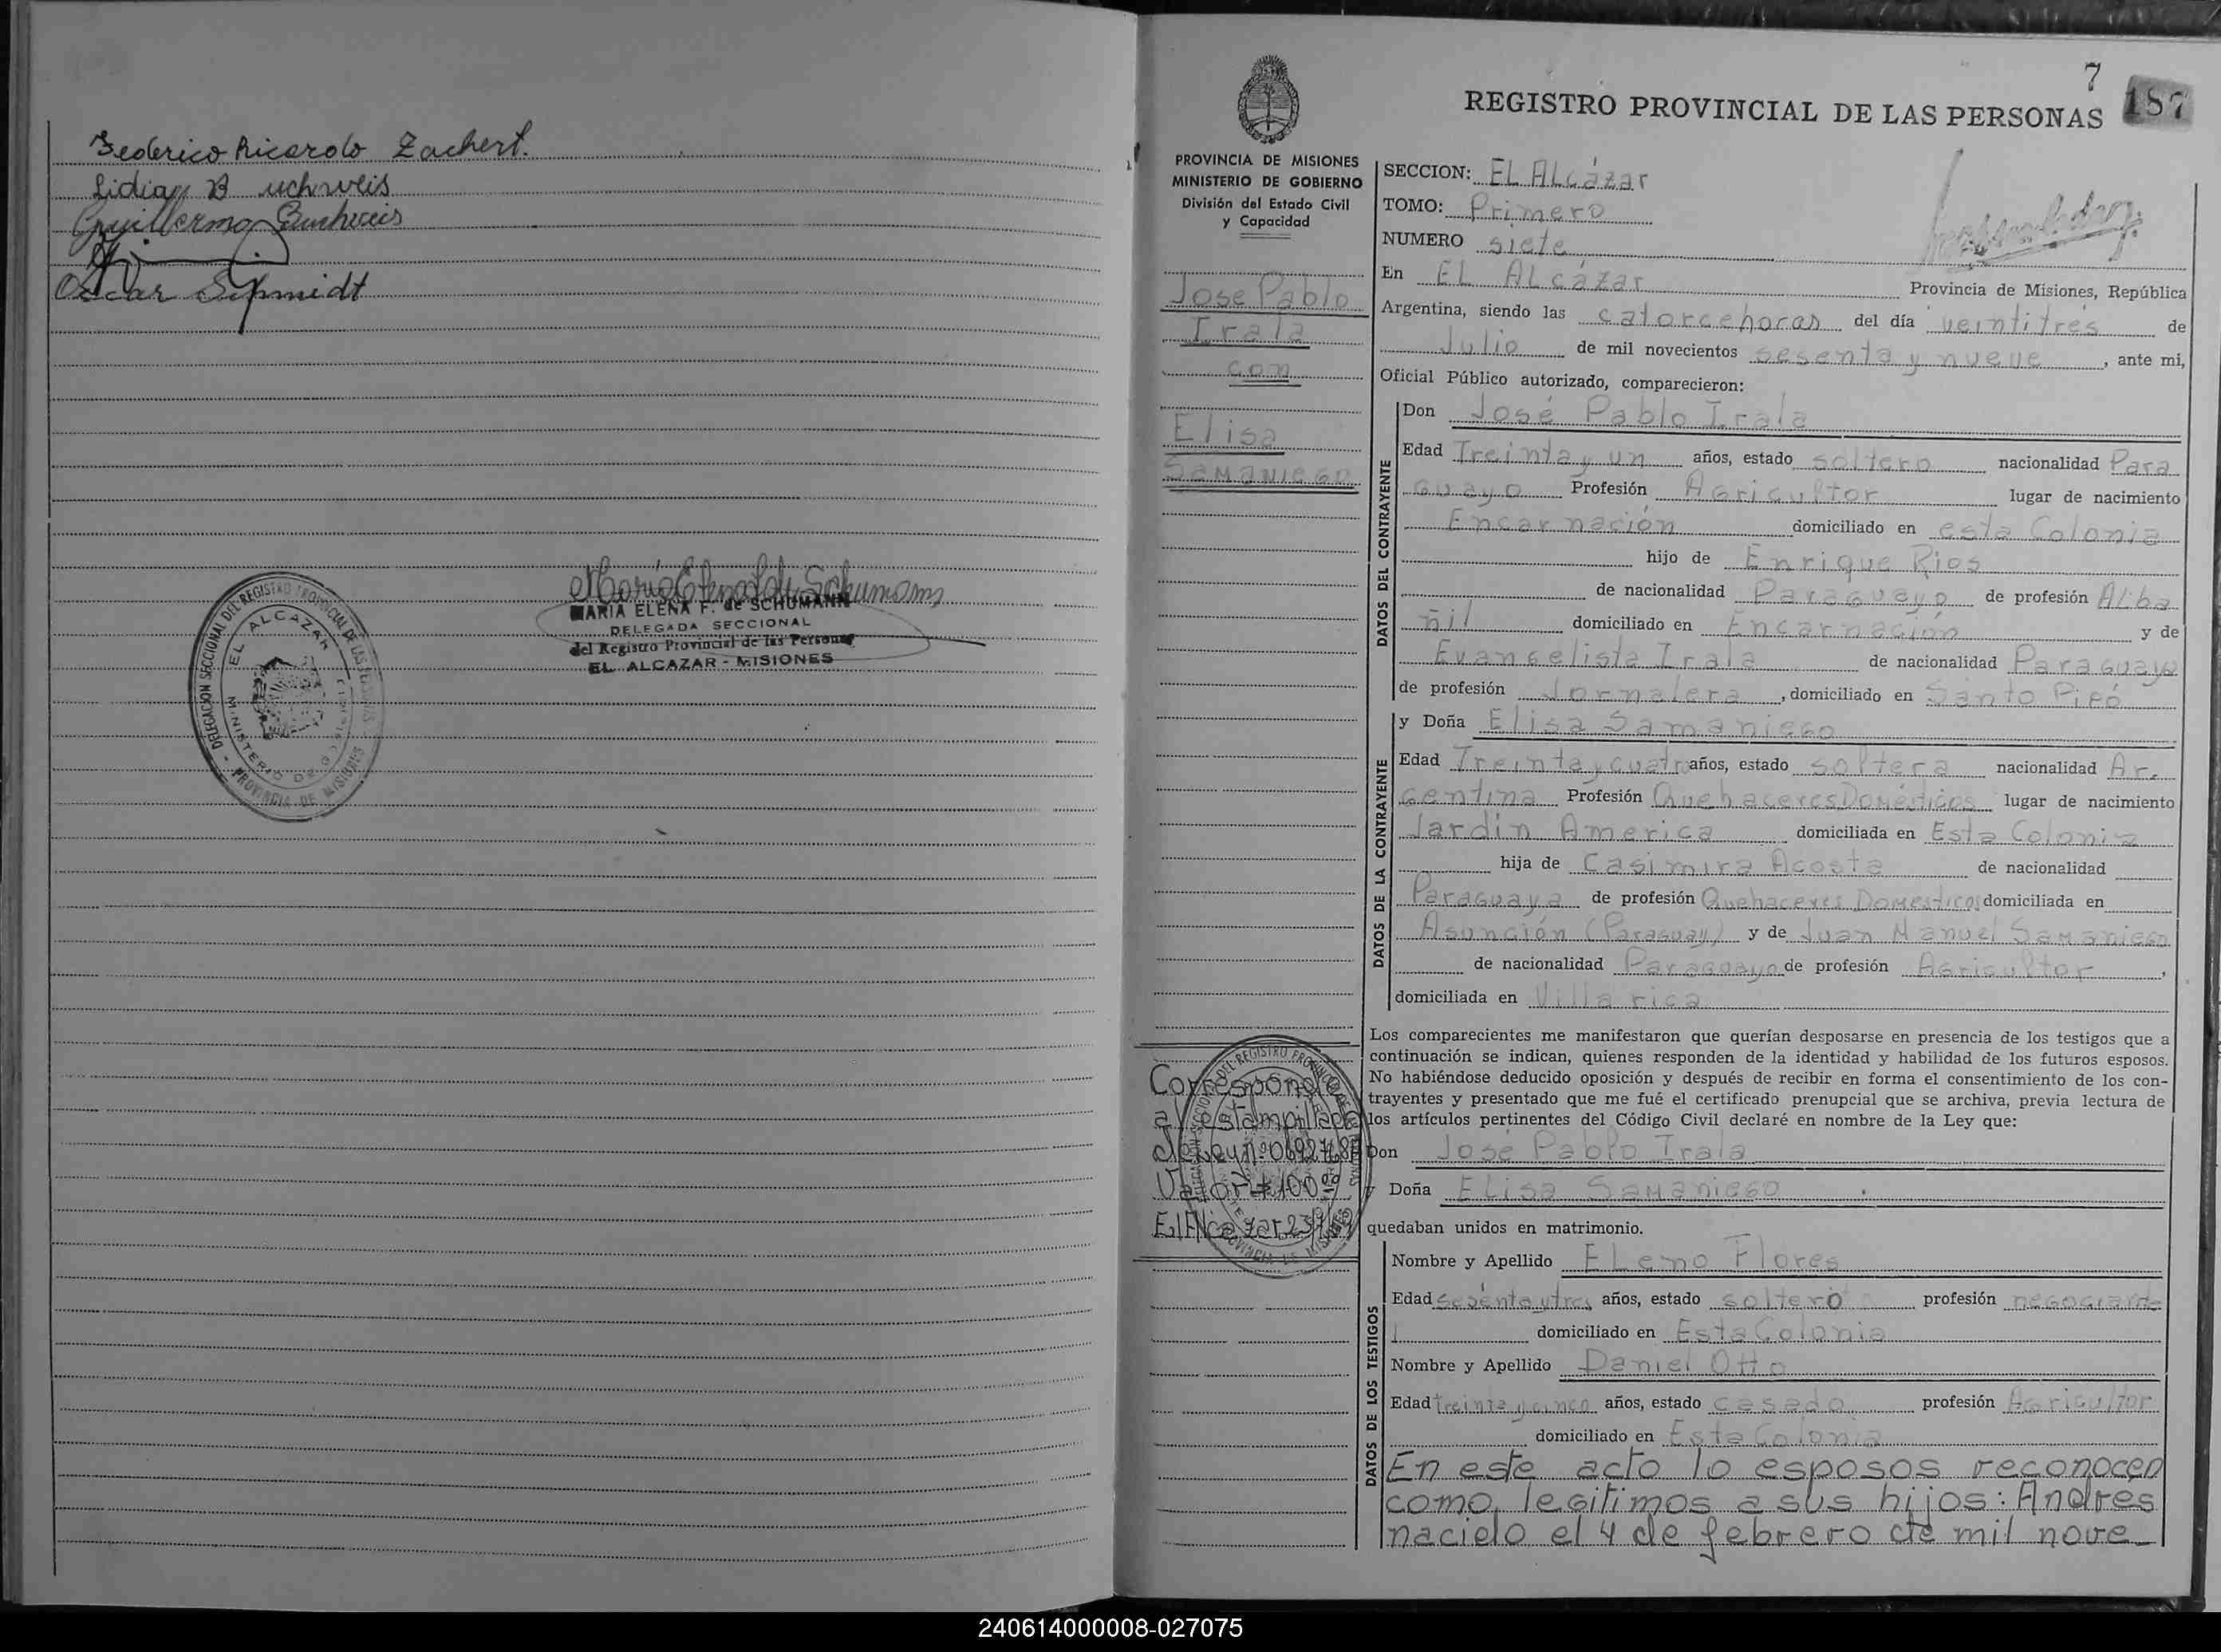 Federico Ricardo Zachert.
Lidia B uchweis
Guillermo Buchweis
Oscar Schmidt
DELEGACION SECCIONAL DEL REGISTRO PROVINCIAL DE LAS PERSONAS
EL ALCAZAR
MINISTERIO DE GOBIERNO
- PROVINCIA DE MISIONES
MARIA ELENA F. de SCHUMANN
DELEGADA SECCIONAL
del Registro Provincial de las Personas
EL ALCAZAR - MISIONES
7
REGISTRO PROVINCIAL DE LAS PERSONAS 187
PROVINCIA DE MISIONES
MINISTERIO DE GOBIERNO
División del Estado Civil
y Capacidad
Jose Pablo
Irala
con
Elisa
SAMANIEGO
Corresponde
al estampillado
de Ley nº
Valor $ 100
El Alcazar 23/7/69
SECCION: EL ALcázar
TOMO: Primero
NUMERO siete
En EL ALcázar Provincia de Misiones, República
Argentina, siendo las catorce horas del día veintitres de
Julio de mil novecientos sesenta y nueve, ante mi,
Oficial Público autorizado, comparecieron:
DATOS DEL CONTRAYENTE
Don José Pablo Irala
Edad Treinta y un años, estado soltero nacionalidad Para
guayo Profesión Agricultor lugar de nacimiento
Encarnación domiciliado en esta Colonia
hijo de Enrique Rios
de nacionalidad Paraguayo de profesión Alba
ñil domiciliado en Encarnación y de
Evangelista Irala de nacionalidad Paraguaya
de profesión Jornalera, domiciliado en Santo Pipó
DATOS DE LA CONTRAYENTE
y Doña Elisa Samaniego
Edad Treinta y cuatro años, estado soltera nacionalidad Ar.
gentina Profesión Quehaceres Domésticos lugar de nacimiento
Jardin America domiciliada en Esta Colonia
hija de Casimira Acosta de nacionalidad
Paraguaya de profesión Quehaceres Domesticos domiciliada en
Asunción (Paraguay) y de Juan Manuel Samaniego
de nacionalidad Paraguayo de profesión Agricultor,
domiciliada en Villa rica
Los comparecientes me manifestaron que querían desposarse en presencia de los testigos que a
continuación se indican, quienes responden de la identidad y habilidad de los futuros esposos.
No habiéndose deducido oposición y después de recibir en forma el consentimiento de los con-
trayentes y presentado que me fué el certificado prenupcial que se archiva, previa lectura de
los artículos pertinentes del Código Civil declaré en nombre de la Ley que:
Don José Pablo Irala
y Doña Elisa Samaniego
quedaban unidos en matrimonio.
DATOS DE LOS TESTIGOS
Nombre y Apellido ELeno Flores
Edad sesenta y tres años, estado soltero profesión negociante
domiciliado en Esta Colonia
Nombre y Apellido Daniel Otto
Edad treinta y cinco años, estado casado profesión Agricultor
domiciliado en Esta Colonia
En este acto lo esposos reconocen
como legitimos a sus hijos: Andres
nacido el 4 de febrero de mil nove-
240614000008-027075